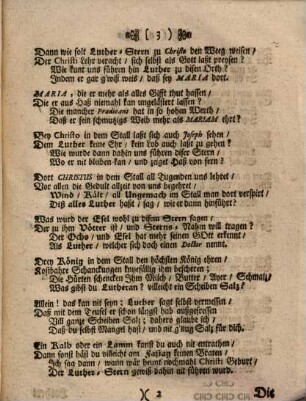 ( 3 )
Dann wie solt Luther-Stern zu Christo den Weeg weisen /
Der Christi Lehr veracht / sich selbst als Gott laßt preysen?
Wie kunt uns führen hin Luther zu disen Orth?
Indem er gar g'wiß weiß / daß sey MARIA dort.
MARIA, die er mehr als alles Gifft thut hassen /
Die er aus Haß niemahl kan ungelästert lassen?
Die mancher Prædicant hat in so hohen Werth /
Daß er sein schmutzigs Weib mehr als MARIAM ehrt?
Bey Christo in dem Stall laßt sich auch Joseph sehen /
Dem Luther keine Ehr / kein Lob auch laßt zu gehen?
Wie wurde dann dahin uns führen diser Stern /
Wo er nit bleiben kan / und zaget Haß von fern?
Dort CHRISTUS in dem Stall all Tugenden uns lehret /
Vor allen die Gedult allzeit von uns begehret /
Wind / Kält / all Ungemach im Stall man dort verspirt /
Diß alles Luther haßt / sag / wie er dann hinführt?
Was wurd der Esel wohl zu disem Stern sagen /
Der zu ihm Vötter ist / und Sterns-Nahm will tragen?
Der Ochs / und Esel hat mehr seinen GOtt erkent /
Als Luther / welcher sich doch einen Doctor nennt.
Drey König in dem Stall den höchsten König ehren /
Kostbahre Schanckungen knyefällig ihm bescheren;
Die Hürten schencken Ihm Milch / Butter / Ayer / Schmaltz /
Was gibst du Lutheran? villeicht ein Scheiben Saltz?
Allein! das kan nit seyn; Luther sagt selbst vermessen /
Daß mit dem Teufel er schon längst hab aufgefressen
Vill gantze Scheiben Saltz; dahero glaube ich /
Daß du selbst Mangel hast / und nit g'nug Saltz für dich.
Ein Kalb oder ein Lamm kunst du auch nit entrathen /
Dann sonst hätst du villeicht am Fasttag keinen Braten /
Ich sag dann / wann wär heunt nochmahl Christi Geburt /
Der Luther-Stern gewiß dahin nit führen wurd.
)( 2 Die